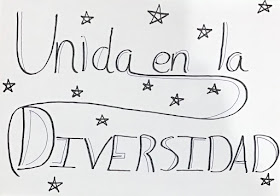 Unida en la
DIVERSIDAD